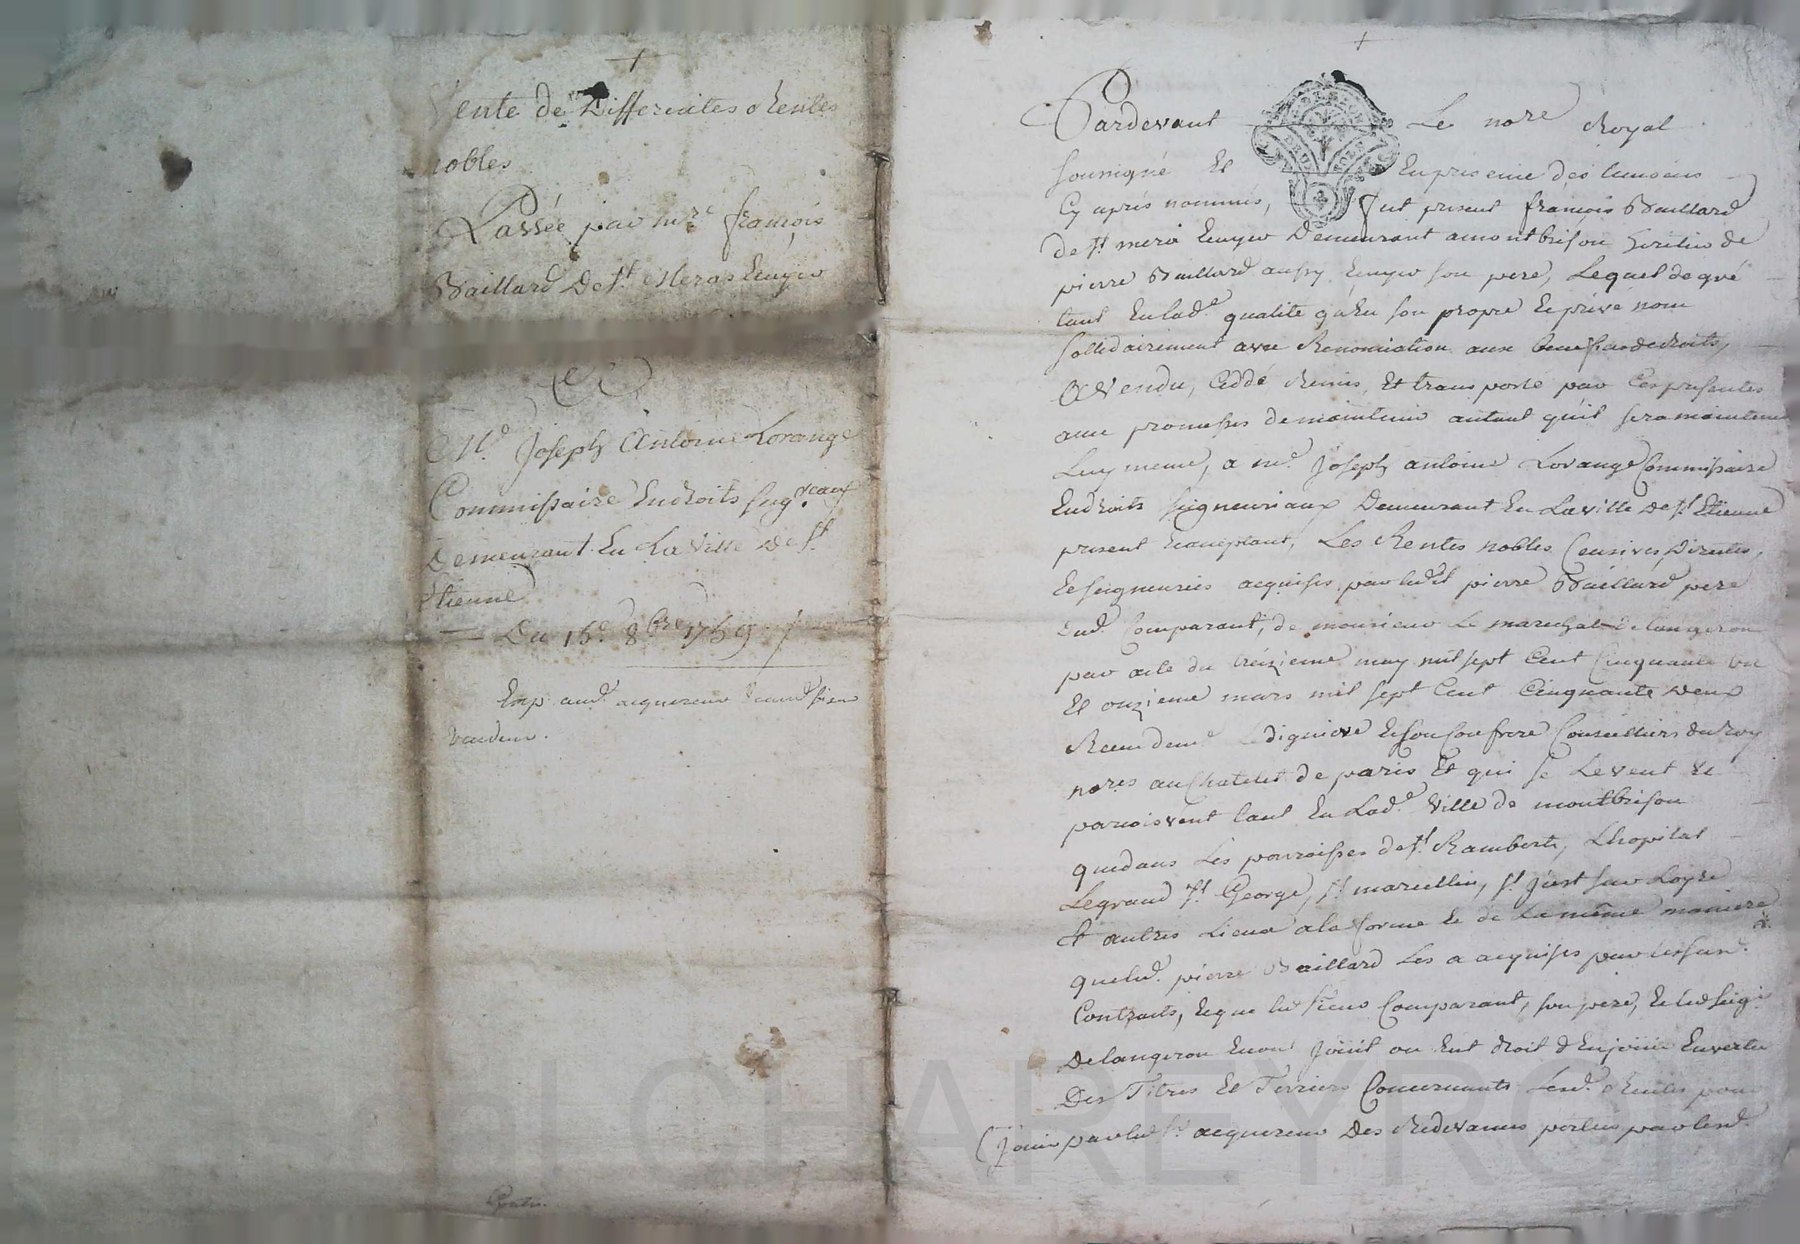 Vente de Differentes Rentes
nobles
Passée par mre françois
Vaillard De st. Meras Ecuyer
A
Me. Joseph Antoine Lorange
Commissaire En droits seigreaux
Demeurant En La Ville De st.
Etienne
Du 16e. 8bre 1759
Exp. aud. acquereur
vendeur.
Pardevant Le nore Royal
soussigné Et En presence des temoins
Cy aprés nommés, fut present françois Vaillard
de st meras Ecuyer Demeurant a montbrison heritier de
pierre Vaillard aussy Ecuyer son pere, Lequel de gré
tant En lad. qualité qu'En son propre Et privé nom
sollidairement avec Renonciation aux
A Vendu, Ceddé Remis, Et transporté par Ces presentes
avec promesses de maintenir autant qu'il sera maintenu
Luy meme, a me. Joseph antoine Lorange Commissaire
En droits seigneuriaux Demeurant En La ville De st. Etienne
present Et acceptant, Les Rentes nobles Censives Directes,
Et seigneuries acquises par ledit pierre Vaillard pere
dud. Comparant, de monsieur Le marechal de langeron
par acte du treizieme may mil sept Cent Cinquante un
Et onzieme mars mil sept Cent Cinquante deux
Recu deme. Et son Confrere Conseillers du Roy
nores au Chatelet de paris Et qui se Levent Et
percoivent tant En Lad. Ville de montbrison
que dans Les parroisses de st. Rambert, Lhopital
Legrand st. George, st. marcellin, st. just sur Loyre
Et autres Lieux a la forme Et de La même maniere
que led. pierre Vaillard Les a acquises par
Contracts, Et que led sieur Comparant, son pere, Et led seigr.
De langeron En ont Jouit ou Eut droit d'En jouir En vertu
Des Titres Et Terriers Concernants Lesd. Rentes pour
Jouir par led sr. acquereur Des Redevances portées par lesd.
CHAREYRON